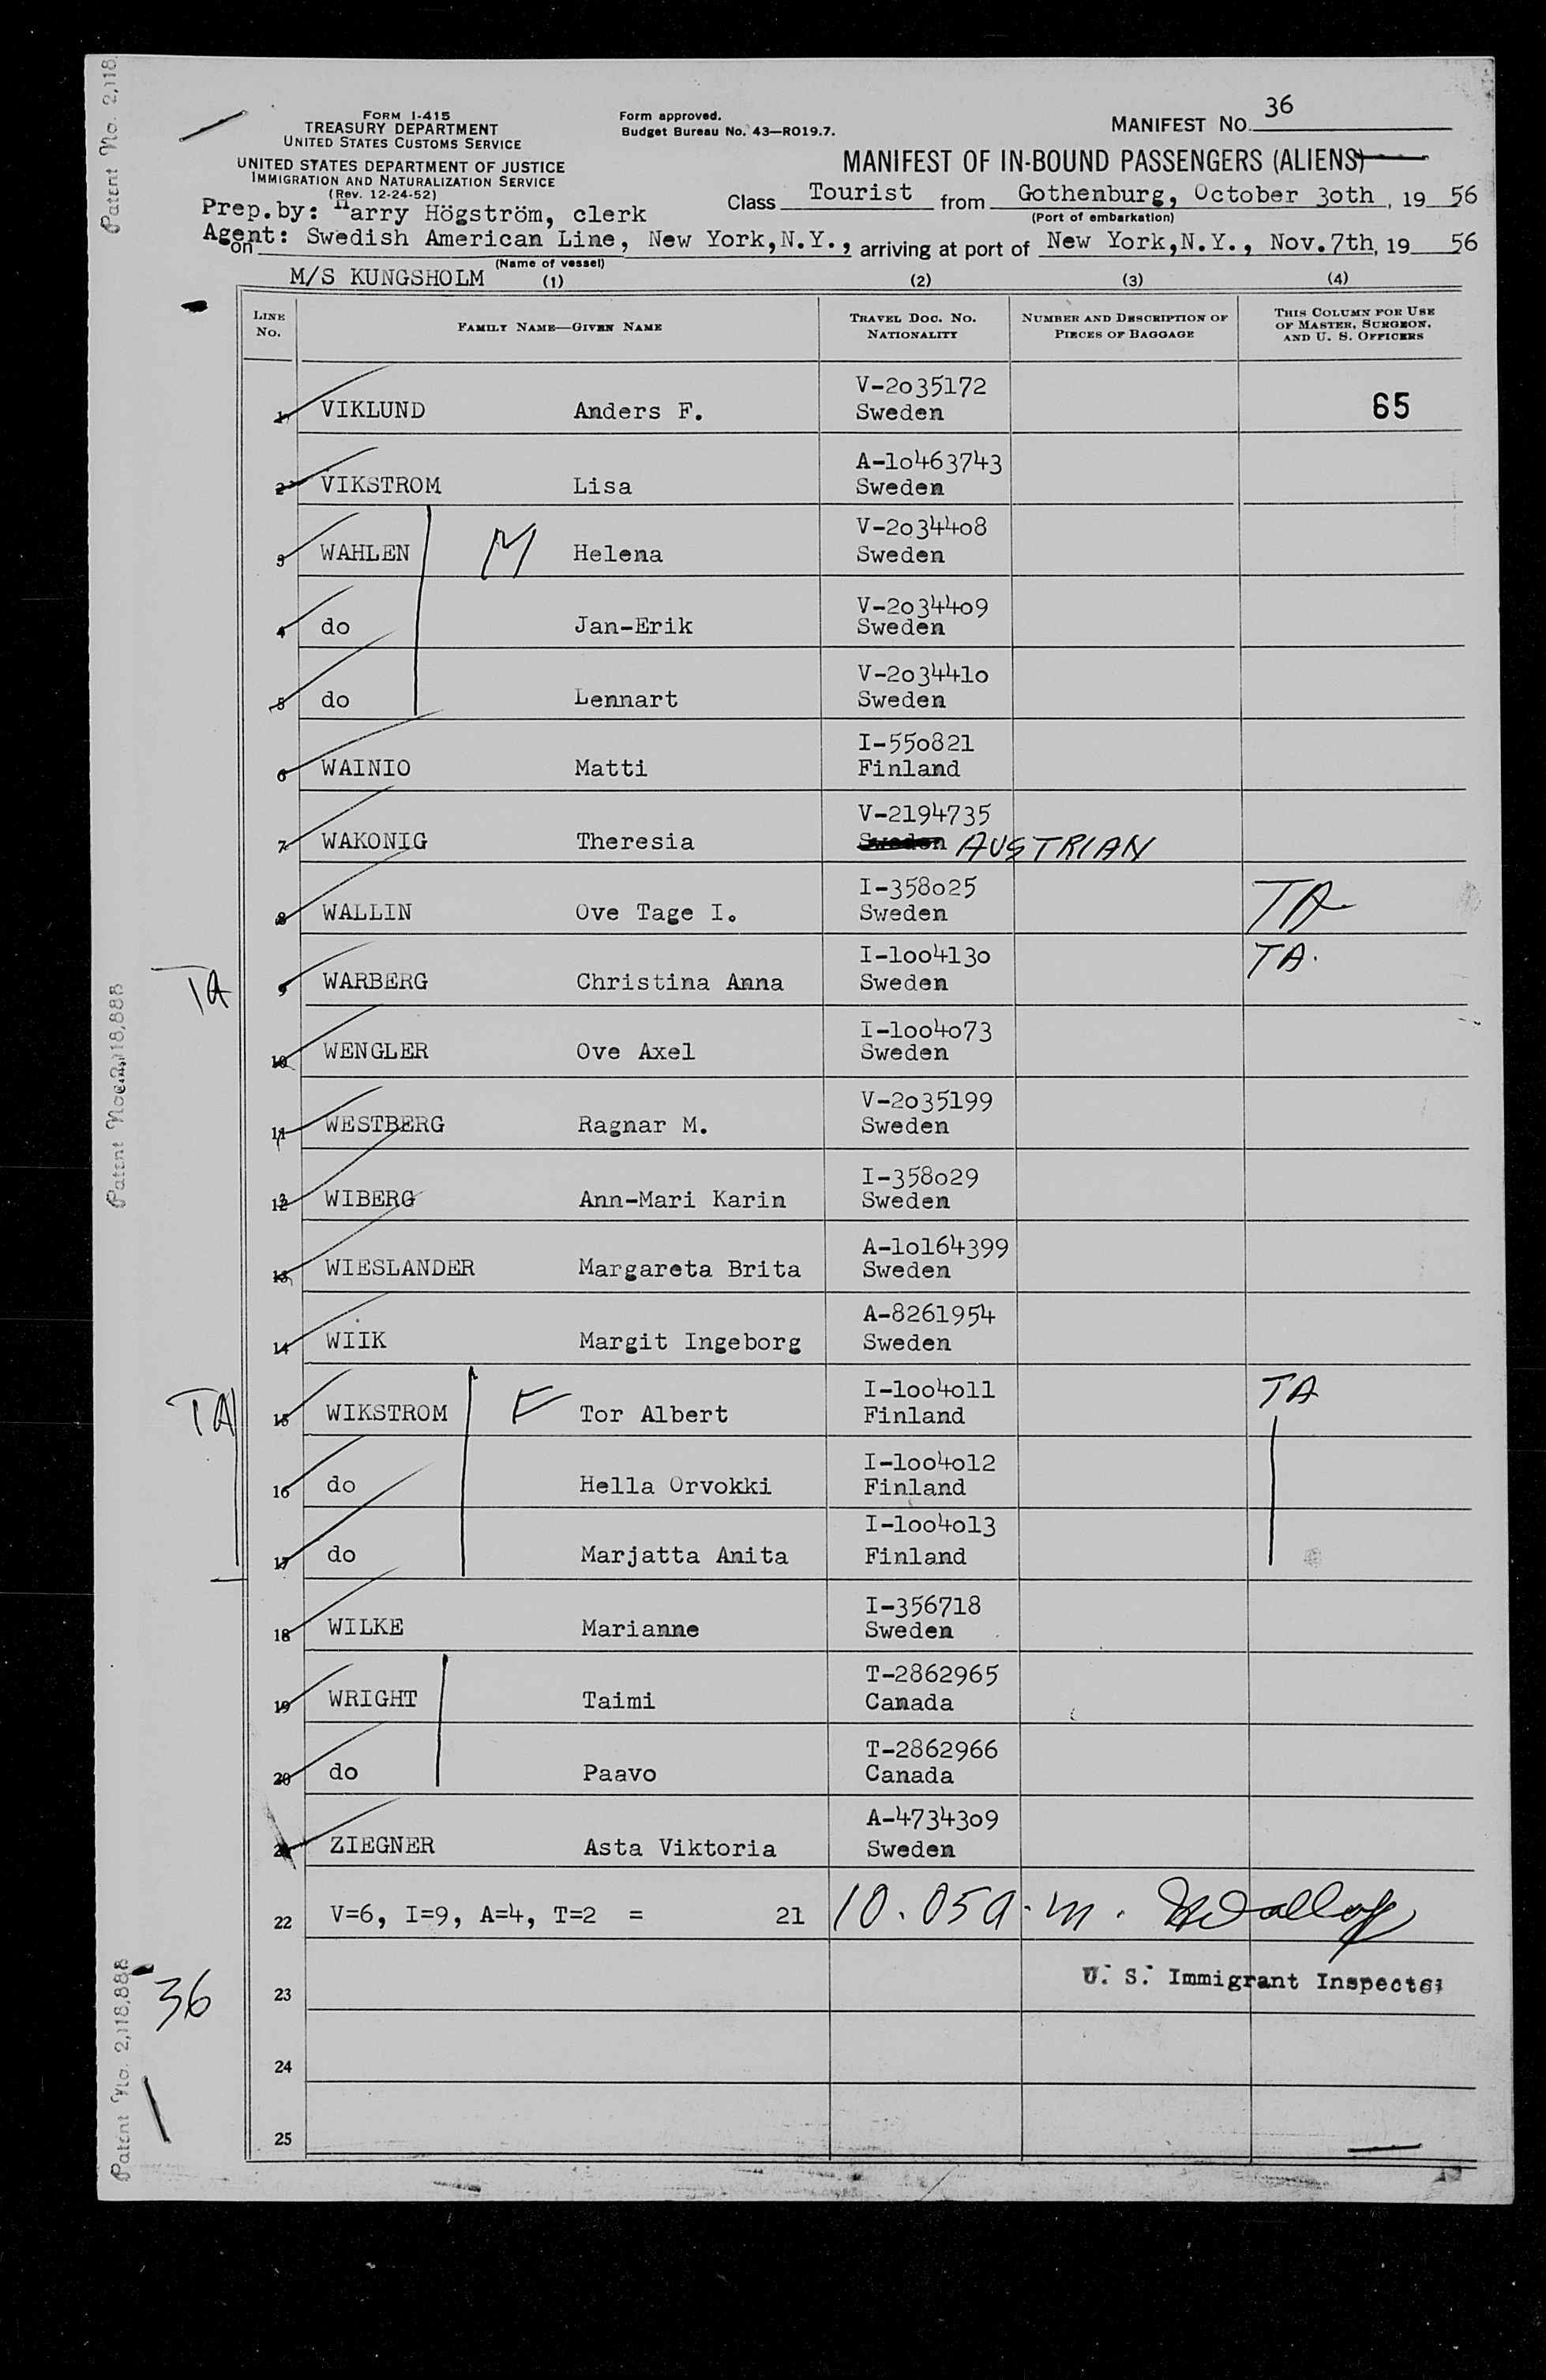 Patent No. 2,118
FORM I-415
TREASURY DEPARTMENT
UNITED STATES CUSTOMS SERVICE
UNITED STATES DEPARTMENT OF JUSTICE
IMMIGRATION AND NATURALIZATION SERVICE
(Rev. 12-24-52)
Form approved.
Budget Bureau No. 43—RO19.7.
MANIFEST NO. 36
MANIFEST OF IN-BOUND PASSENGERS (ALIENS)
Prep.by: Harry Högström, clerk
Class Tourist from Gothenburg, October 30th, 19 56
(Port of embarkation)
Agent: Swedish American Line, New York,N.Y., arriving at port of New York,N.Y., Nov.7th, 19 56
on
(Name of vessel)
M/S KUNGSHOLM
(1) (2) (3) (4)
LINE NO.
FAMILY NAME—GIVEN NAME
TRAVEL DOC. NO. NATIONALITY
NUMBER AND DESCRIPTION OF PIECES OF BAGGAGE
THIS COLUMN FOR USE OF MASTER, SURGEON, AND U. S. OFFICERS
V-2035172
1 VIKLUND Anders F. Sweden 65
A-10463743
2 VIKSTROM Lisa Sweden
V-2034408
3 WAHLEN M Helena Sweden
V-2034409
4 do Jan-Erik Sweden
V-2034410
5 do Lennart Sweden
I-550821
6 WAINIO Matti Finland
V-2194735
7 WAKONIG Theresia Sweden AUSTRIAN
I-358025
8 WALLIN Ove Tage I. Sweden TA
I-1004130
TA 9 WARBERG Christina Anna Sweden TA.
I-1004073
10 WENGLER Ove Axel Sweden
V-2035199
11 WESTBERG Ragnar M. Sweden
I-358029
12 WIBERG Ann-Mari Karin Sweden
A-10164399
13 WIESLANDER Margareta Brita Sweden
A-8261954
14 WIIK Margit Ingeborg Sweden
I-1004011
TA 15 WIKSTROM F Tor Albert Finland TA
I-1004012
16 do Hella Orvokki Finland
I-1004013
17 do Marjatta Anita Finland
I-356718
18 WILKE Marianne Sweden
T-2862965
19 WRIGHT Taimi Canada
T-2862966
20 do Paavo Canada
A-4734309
21 ZIEGNER Asta Viktoria Sweden
22 V=6, I=9, A=4, T=2 = 21 10.05 a.m.
U. S. Immigrant Inspector
23
36
24
25
Patent No. 2,118,888
Patent No. 2,118,888